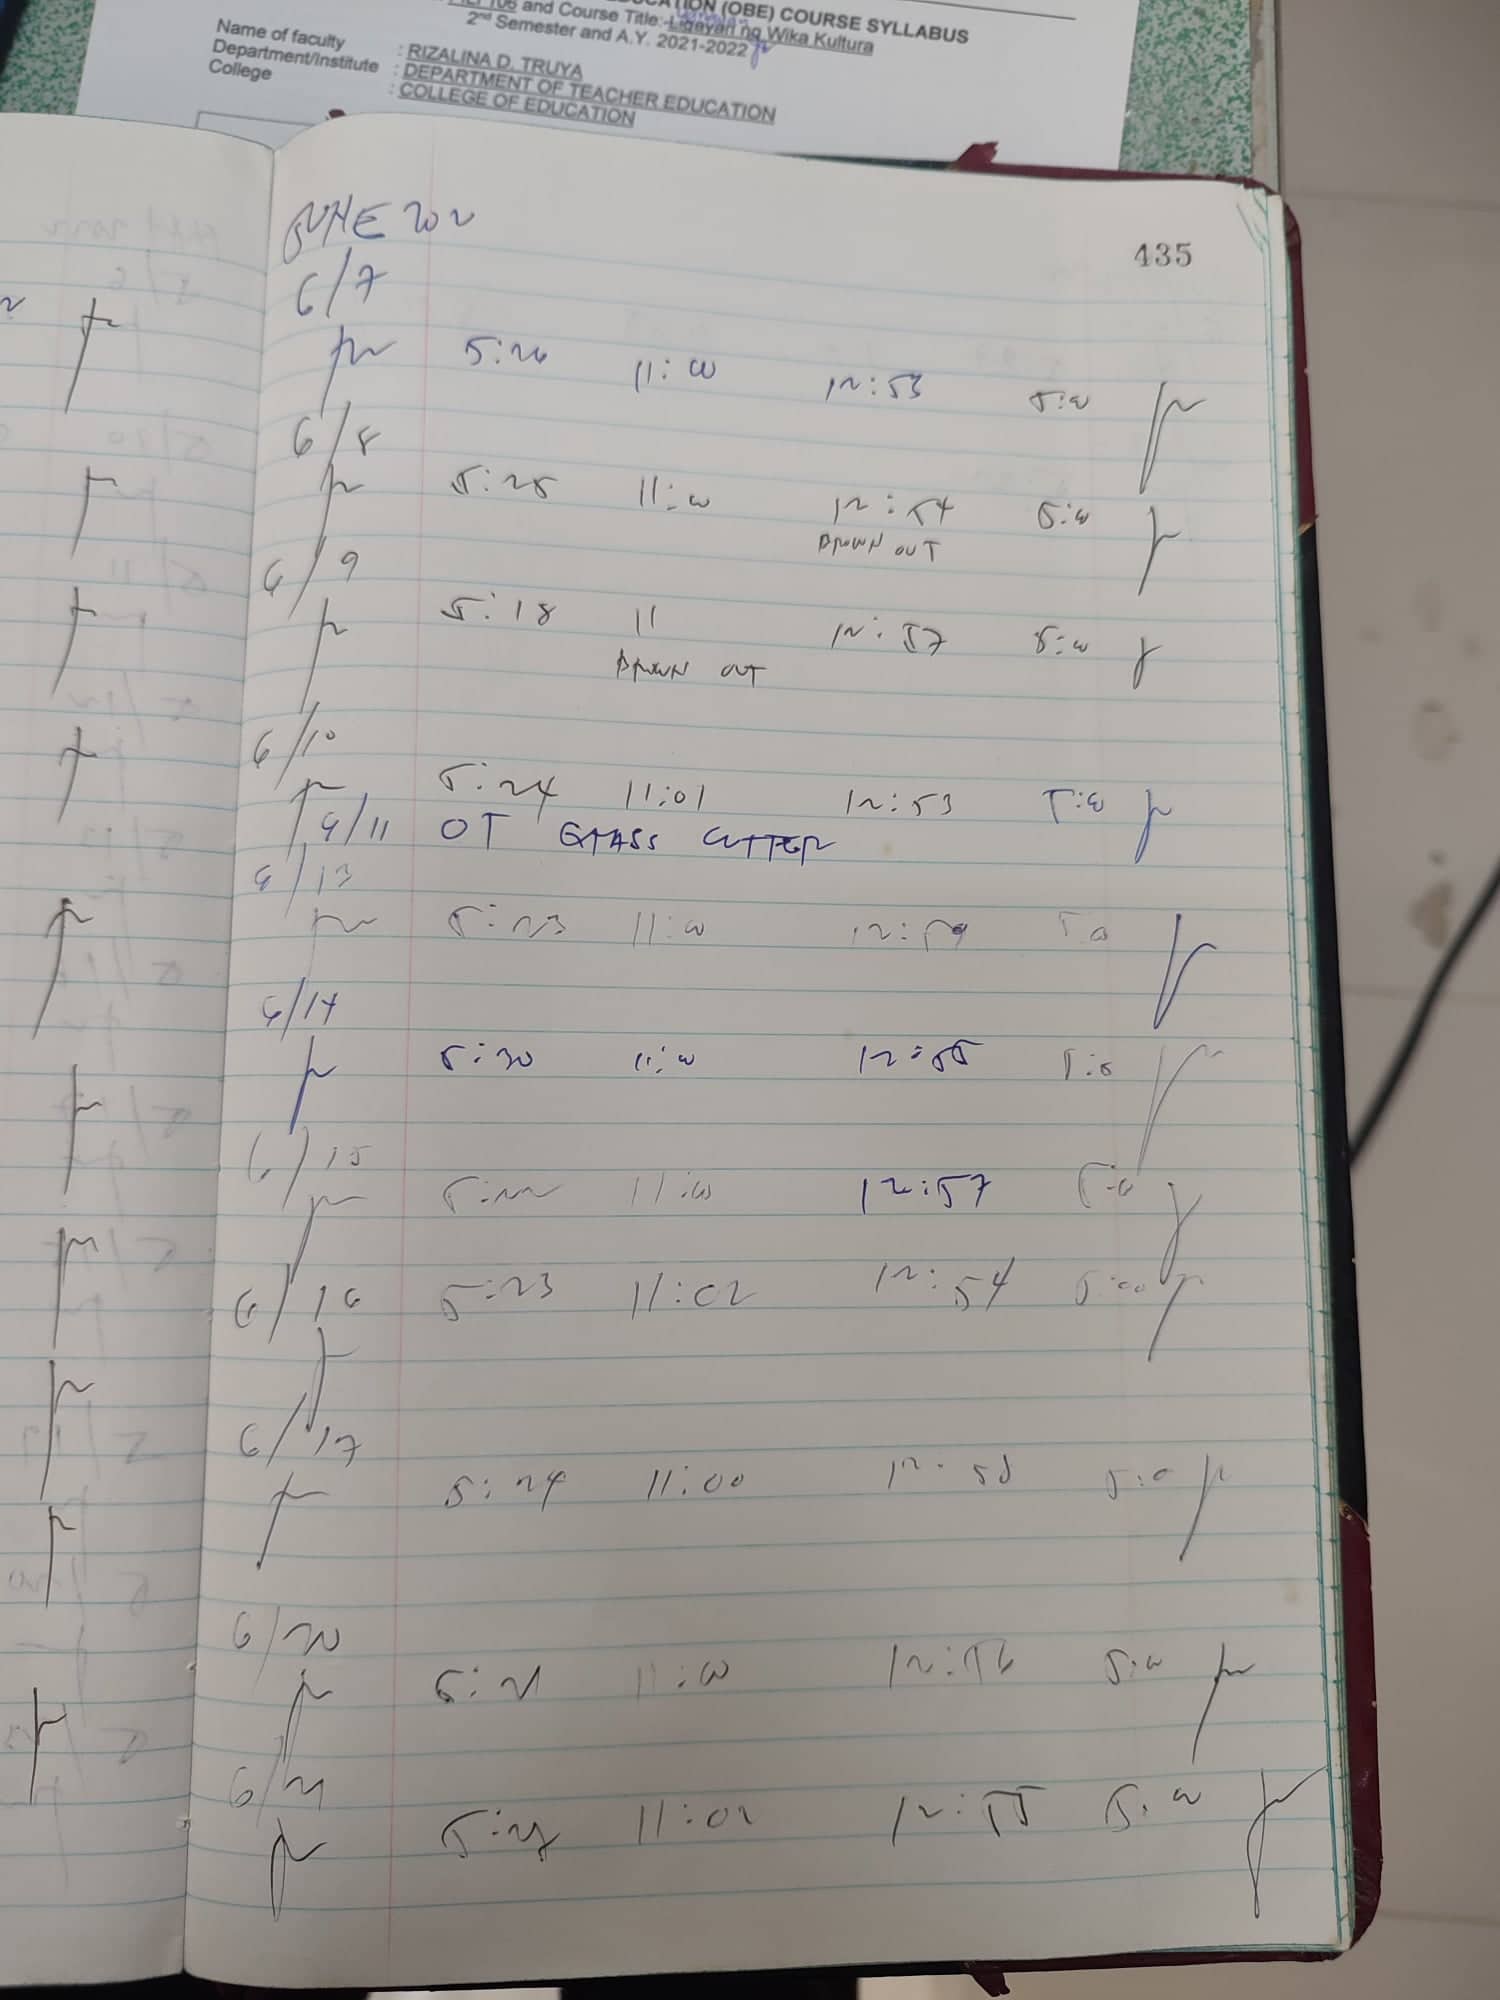 (OBE) COURSE SYLLABUS
106 and Course Title: Ligayan ng Wika Kultura
2nd Semester and A.Y. 2021-2022
Name of faculty : RIZALINA D. TRUYA
Department/Institute : DEPARTMENT OF TEACHER EDUCATION
College : COLLEGE OF EDUCATION
435
JUNE 2022
6/7
5:26 11:00 12:53 5:00
6/8
5:25 11:00 12:54 5:00
BROWN OUT
6/9
5:18 11 12:57 5:00
BROWN OUT
6/10
5:24 11:01 12:53 5:00
6/11 OT GRASS CUTTER
6/13
5:23 11:00 12:59 5:00
6/14
5:30 11:00 12:55 5:0
6/15
5:22 11:00 12:57 5:00
6/16 5:23 11:02 12:54 5:00
6/17
5:24 11:00 12:58 5:0
6/20
5:21 11:00 12:56 5:00
6/21
11:02 12:55 5:00